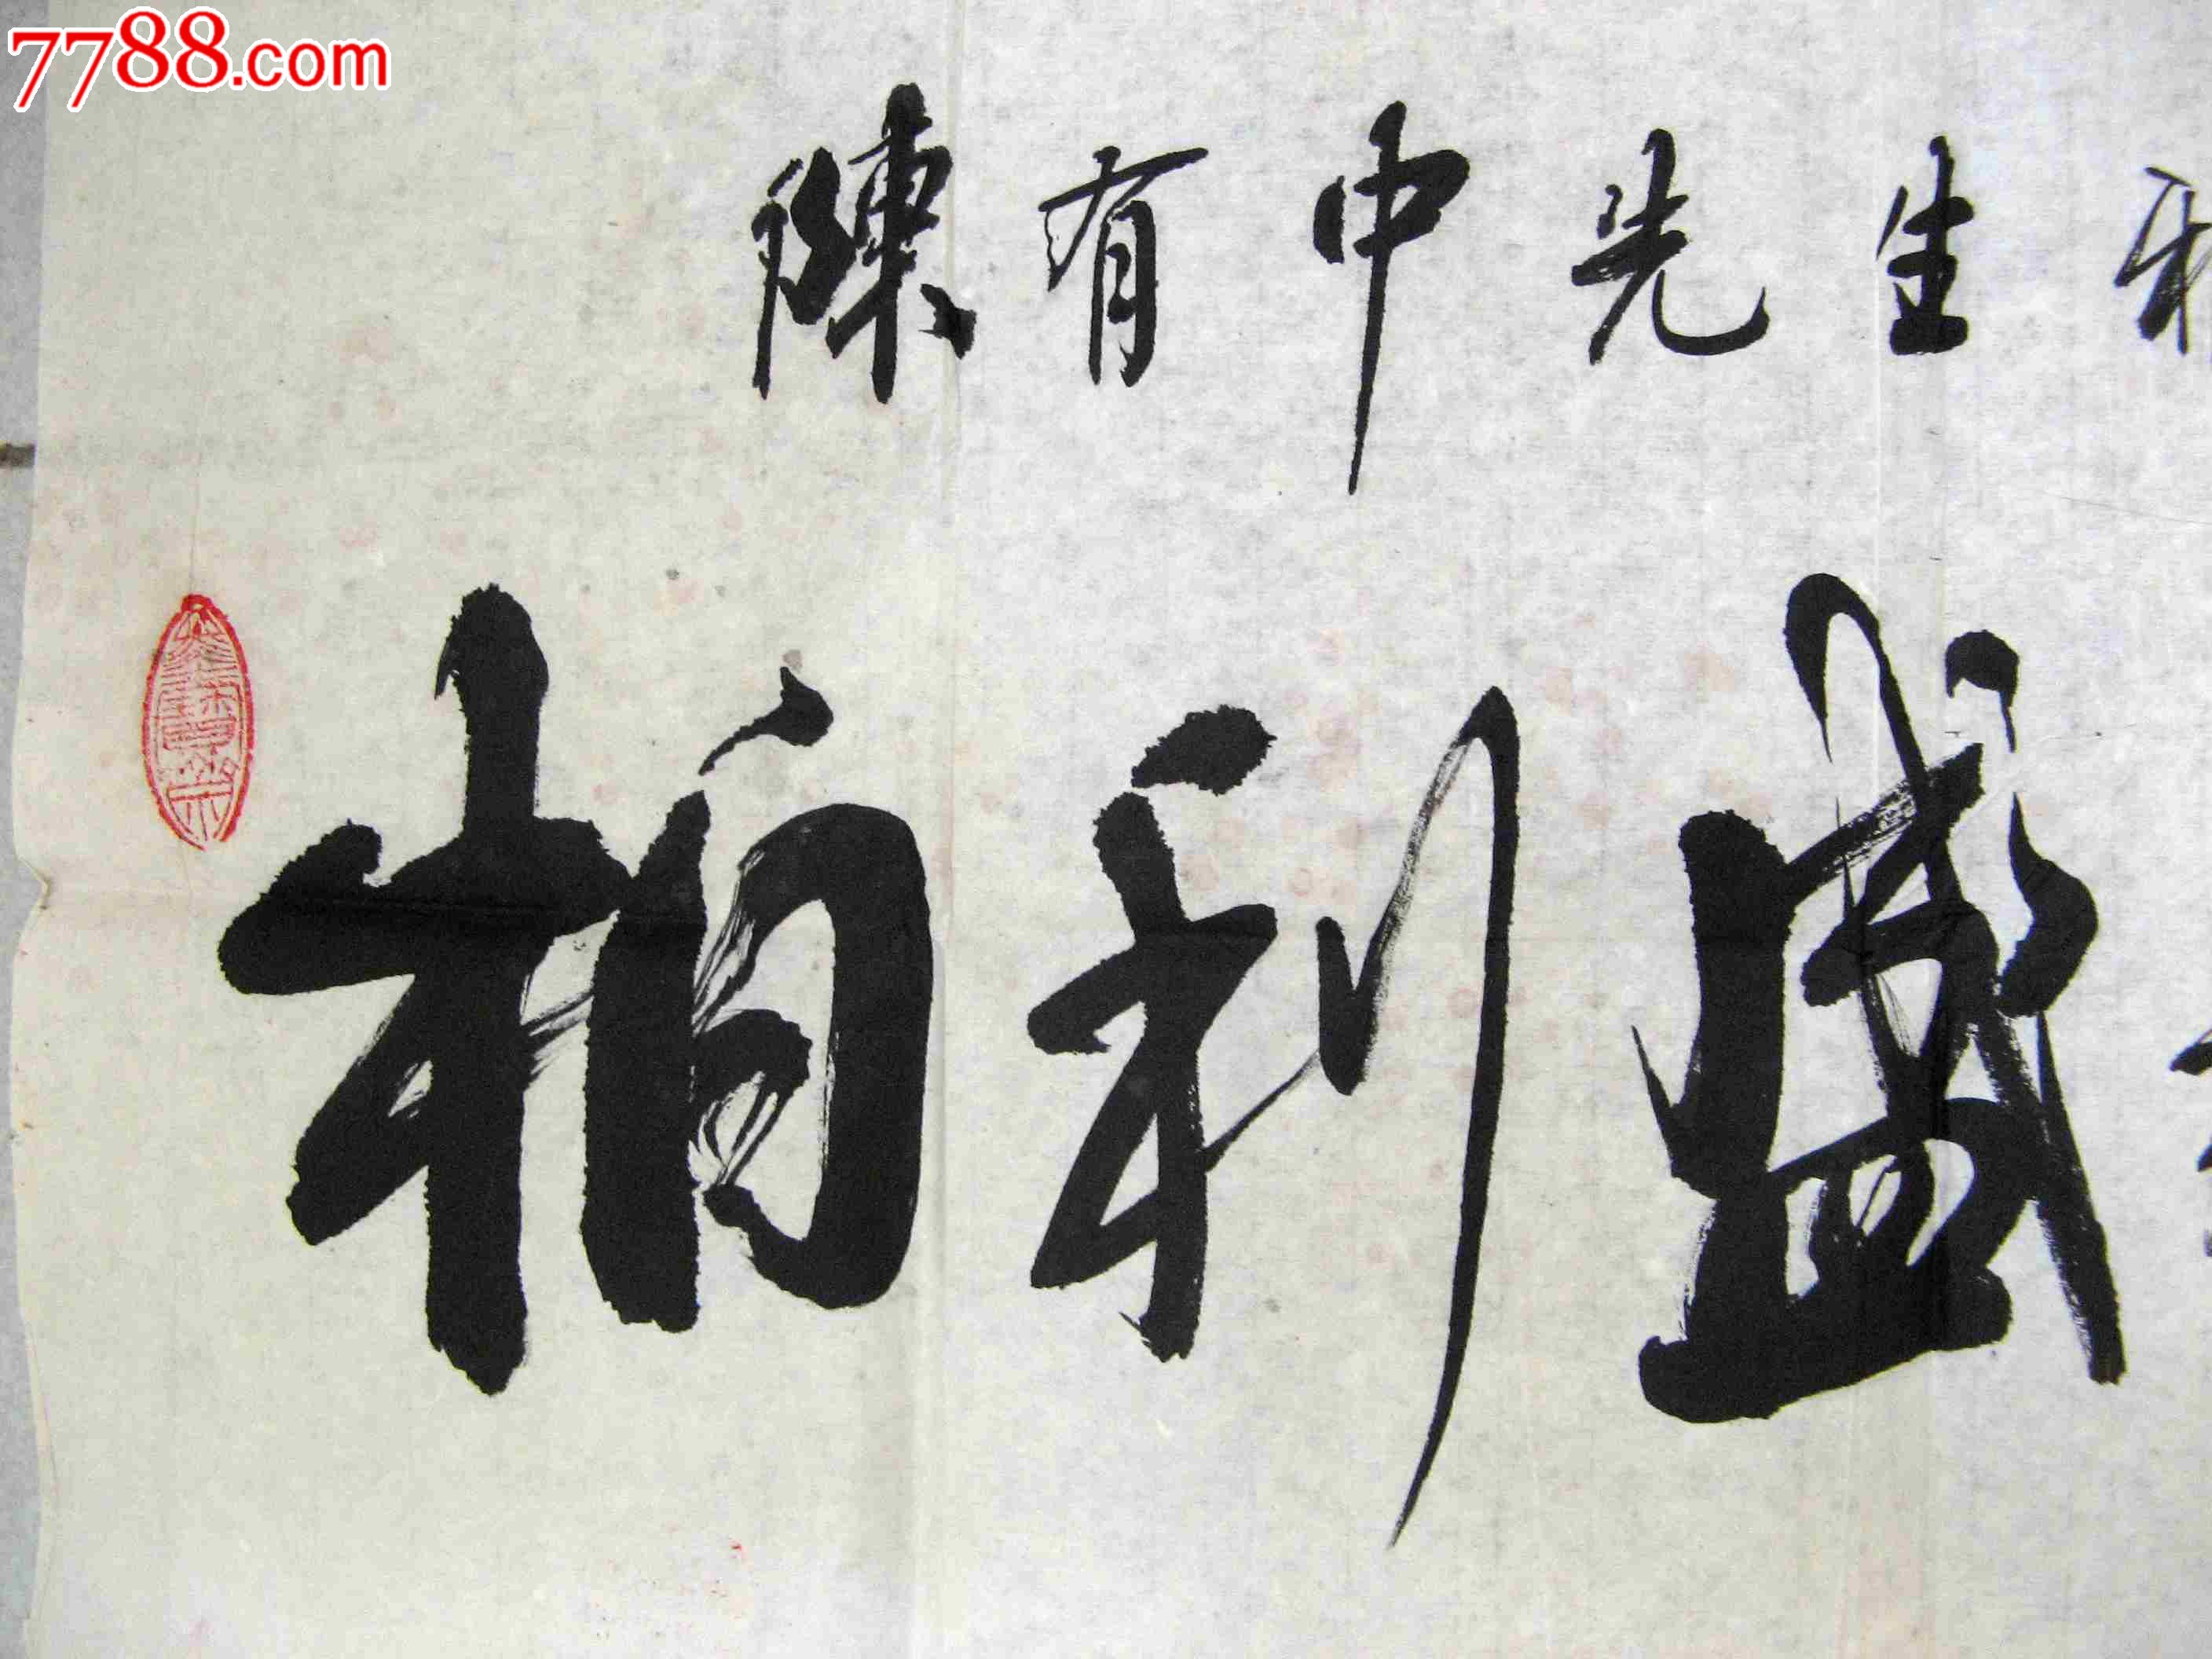 7788.com
陳有中先生
柏利盛